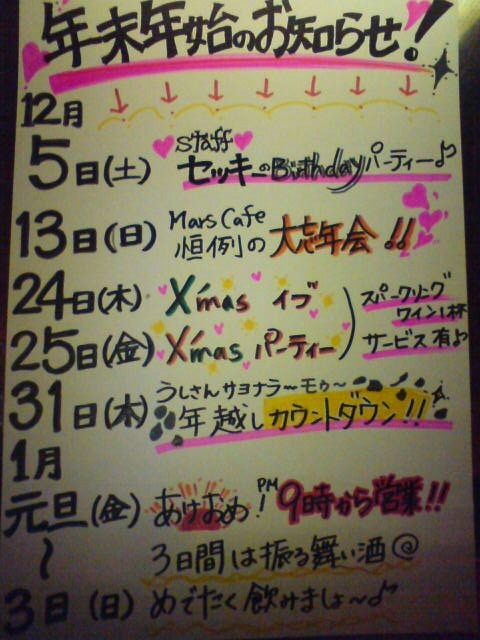 年末年始のお知らせ!
12月
5日(土) staff
セッキーのBirthdayパーティー♪
13日(日) Mars Cafe
恒例の大忘年会!!
24日(木) X'mas イブ
25日(金) X'mas パーティー
スパークリング
ワイン1杯
サービス有♪
31日(木) うしさんサヨナラ〜モゥ〜
年越しカウントダウン!!
1月
元旦(金) あけおめ! PM 9時から営業!!
〜 3日間は振る舞い酒@
3日(日) めでたく飲みましょ〜♪